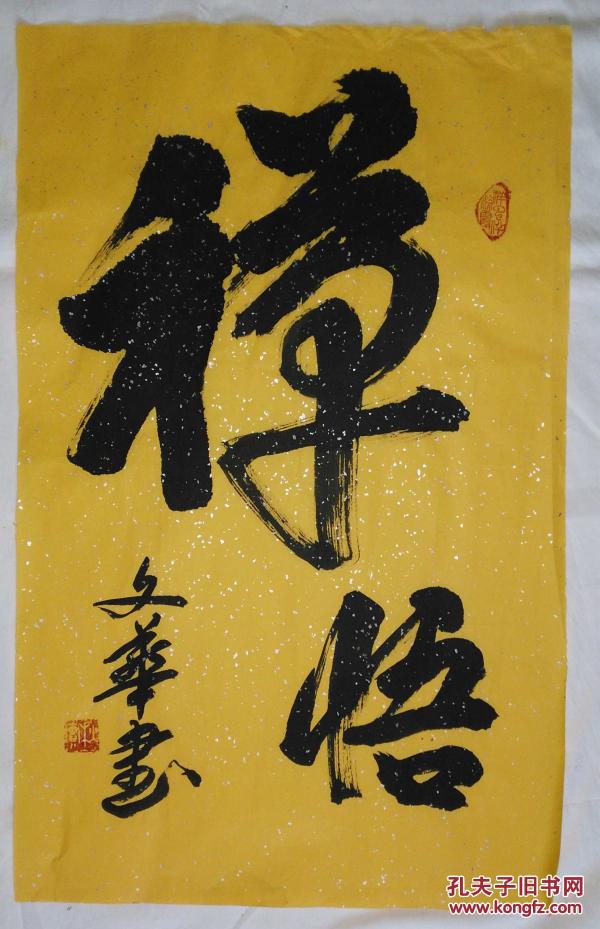 禅悟
文華書
孔夫子旧书网
www.kongfz.com